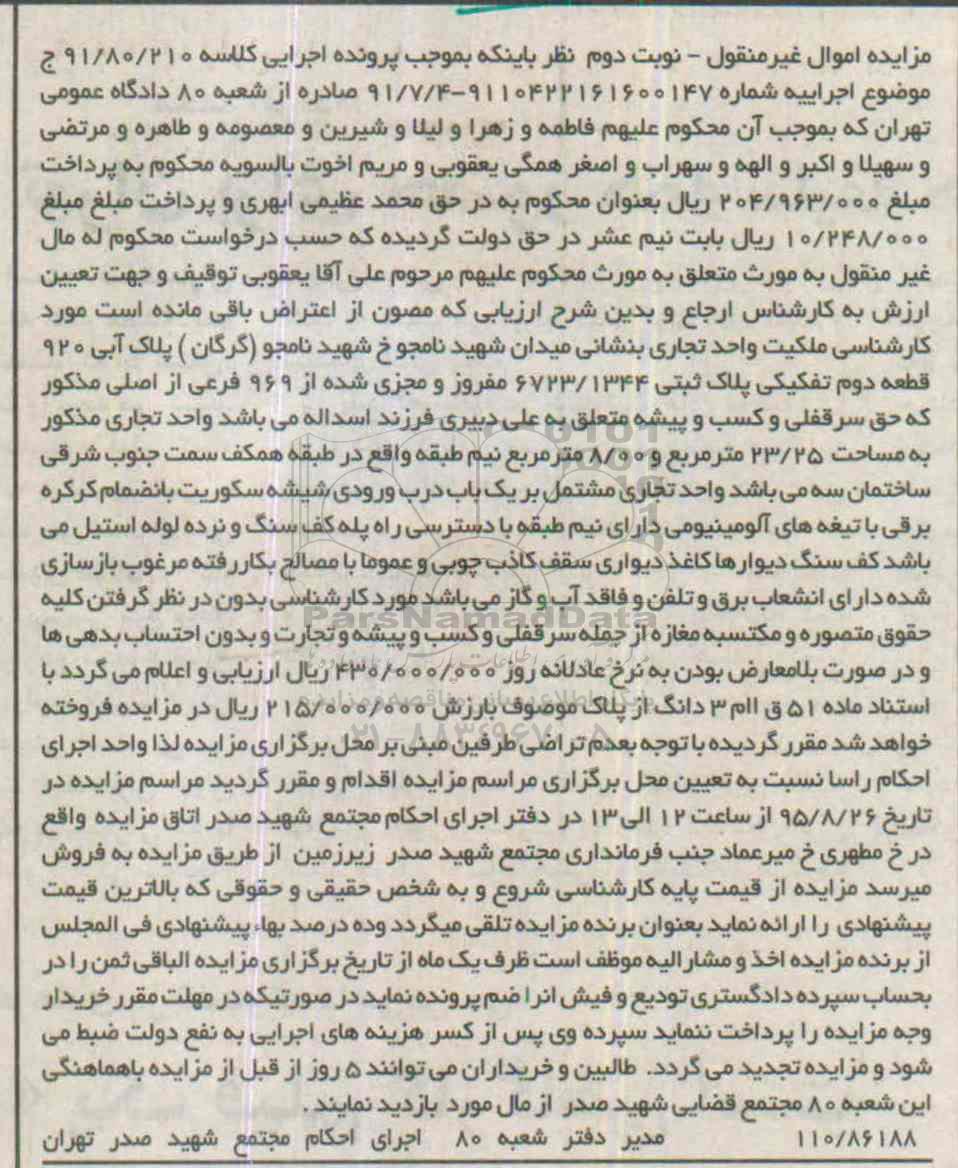 مزایده اموال غیرمنقول – نوبت دوم نظر باینکه بموجب پرونده اجرایی کلاسه ۹۱/۸۰/۲۱۰ ج
موضوع اجراییه شماره ۹۱۱۰۴۲۲۱۶۱۶۰۰۱۴۷-۹۱/۷/۴ صادره از شعبه ۸۰ دادگاه عمومی
تهران که بموجب آن محکوم علیهم فاطمه و زهرا و لیلا و شیرین و معصومه و طاهره و مرتضی
و سهیلا و اکبر و الهه و سهراب و اصغر همگی یعقوبی و مریم اخوت بالسویه محکوم به پرداخت
مبلغ ۲۰۴/۹۶۳/۰۰۰ ریال بعنوان محکوم به در حق محمد عظیمی ابهری و پرداخت مبلغ مبلغ
۱۰/۲۴۸/۰۰۰ ریال بابت نیم عشر در حق دولت گردیده که حسب درخواست محکوم له مال
غیر منقول به مورث متعلق به مورث محکوم علیهم مرحوم علی آقا یعقوبی توقیف و جهت تعیین
ارزش به کارشناس ارجاع و بدین شرح ارزیابی که مصون از اعتراض باقی مانده است مورد
کارشناسی ملکیت واحد تجاری بنشانی میدان شهید نامجو خ شهید نامجو (گرگان ) پلاک آبی ۹۲۰
قطعه دوم تفکیکی پلاک ثبتی ۶۷۲۳/۱۳۴۴ مفروز و مجزی شده از ۹۶۹ فرعی از اصلی مذکور
که حق سرقفلی و کسب و پیشه متعلق به علی دبیری فرزند اسداله می باشد واحد تجاری مذکور
به مساحت ۲۳/۲۵ مترمربع و ۸/۰۰ مترمربع نیم طبقه واقع در طبقه همکف سمت جنوب شرقی
ساختمان سه می باشد واحد تجاری مشتمل بر یک باب درب ورودی شیشه سکوریت بانضمام کرکره
برقی با تیغه های آلومینیومی دارای نیم طبقه با دسترسی راه پله کف سنگ و نرده لوله استیل می
باشد کف سنگ دیوارها کاغذ دیواری سقف کاذب چوبی و عموما با مصالح بکاررفته مرغوب بازسازی
شده دارای انشعاب برق و تلفن و فاقد آب و گاز می باشد مورد کارشناسی بدون در نظر گرفتن کلیه
حقوق متصوره و مکتسبه مغازه از جمله سرقفلی و کسب و پیشه و تجارت و بدون احتساب بدهی ها
و در صورت بلامعارض بودن به نرخ عادلانه روز ۴۳۰/۰۰۰/۰۰۰ ریال ارزیابی و اعلام می گردد با
استناد ماده ۵۱ ق اام ۳ دانگ از پلاک موصوف بارزش ۲۱۵/۰۰۰/۰۰۰ ریال در مزایده فروخته
خواهد شد مقرر گردیده با توجه بعدم تراضی طرفین مبنی بر محل برگزاری مزایده لذا واحد اجرای
احکام راسا نسبت به تعیین محل برگزاری مراسم مزایده اقدام و مقرر گردید مراسم مزایده در
تاریخ ۹۵/۸/۲۶ از ساعت ۱۲ الی ۱۳ در دفتر اجرای احکام مجتمع شهید صدر اتاق مزایده واقع
در خ مطهری خ میرعماد جنب فرمانداری مجتمع شهید صدر زیرزمین از طریق مزایده به فروش
میرسد مزایده از قیمت پایه کارشناسی شروع و به شخص حقیقی و حقوقی که بالاترین قیمت
پیشنهادی را ارائه نماید بعنوان برنده مزایده تلقی میگردد وده درصد بهاء پیشنهادی فی المجلس
از برنده مزایده اخذ و مشارالیه موظف است ظرف یک ماه از تاریخ برگزاری مزایده الباقی ثمن را در
بحساب سپرده دادگستری تودیع و فیش انرا ضم پرونده نماید در صورتیکه در مهلت مقرر خریدار
وجه مزایده را پرداخت ننماید سپرده وی پس از کسر هزینه های اجرایی به نفع دولت ضبط می
شود و مزایده تجدید می گردد. طالبین و خریداران می توانند ۵ روز از قبل از مزایده باهماهنگی
این شعبه ۸۰ مجتمع قضایی شهید صدر از مال مورد بازدید نمایند .
۱۱۰/۸۶۱۸۸ مدیر دفتر شعبه ۸۰ اجرای احکام مجتمع شهید صدر تهران
ParsNamadData
۰۲۱-۸۸۳۴۹۶۷۰-۵